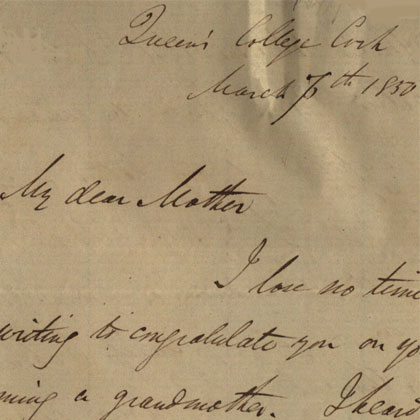 Queen's College Cork
March 7th 1850
My dear Mother
I lose no time
writing to congratulate you on yo
ming a grandmother. I heard